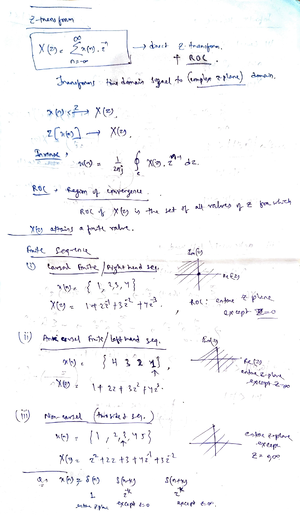 Z-transform
X(z) = ∞ Σ n=-∞ x(n) z⁻ⁿ → direct Z-transform
+ ROC.
Transforms time domain signal to (complex z-plane) domain.
x(n) ←z→ X(z)
Z[x(n)] → X(z)
Inverse :
x(n) = 1/2πj ∮c X(z) zⁿ⁻¹ dz.
ROC - Region of convergence
ROC of X(z) is the set of all values of z for which
X(z) attains a finite value.
Finite Sequence
(i) Causal finite / Right hand seq.
x(n) = { 1, 2, 3, 4 }
X(z) = 1 + 2z⁻¹ + 3z⁻² + 4z⁻³
Im(z)
Re(z)
ROC : entire z-plane
except z=0
(ii) Anti causal finite / left hand seq.
x(n) = { 4 3 2 1 }
↑
X(z) = 1 + 2z + 3z² + 4z³
Im(z)
Re(z)
entire z-plane
except z=∞
(iii) Non-causal (two sided seq.)
x(n) = { 1, 2, 3, 4 5 }
↑
X(z) = z² + 2z + 3 + 4z⁻¹ + 5z⁻²
entire z-plane
except
z = 0, ∞
x(n) = δ(n)
1
entire z-plane
except z=0
except z=∞.